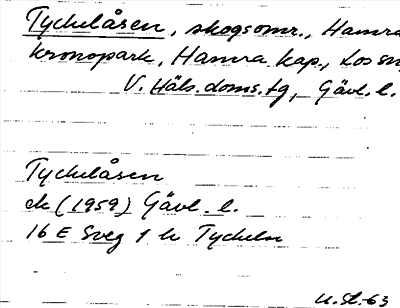 Tyckelåsen, skogsomr., Hamra
kronopark, Hamra kap., Los sn
V. Häls. doms. tg, Gävl. l.
Tyckelåsen
ek (1959) Gävl. l.
16 E Sveg 1 h Tyckeln
U. St. -63